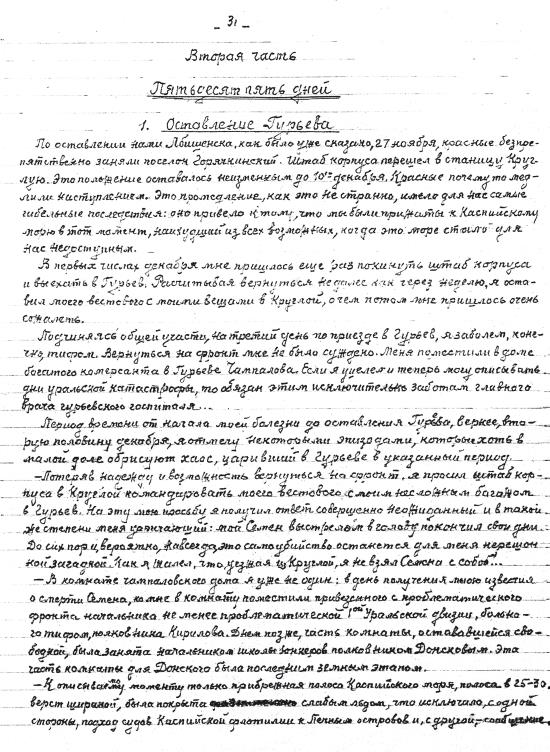 - 31 -
Вторая часть
Пятьдесят пять дней
1. Оставление Гурьева
По оставлении нами Лбищенска, как было уже сказано, 27 ноября, красные безпре-
пятственно заняли поселок Горячкинский. Штаб корпуса перешел в станицу Круг-
лую. Это положение оставалось неизменным до 10го декабря. Красные почему то мед-
лили наступлением. Это промедление, как это не странно, имело для нас самые
гибельные последствия: оно привело к тому, что мы были прижаты к Каспийскому
морю в тот момент, наихудший из всех возможных, когда это море стало для
нас недоступным.
В первых числах декабря мне пришлось еще раз покинуть штаб корпуса
и выехать в Гурьев. Расчитывая вернуться не далее как через неделю, я оста-
вил моего вестового с моими вещами в Круглой, о чем потом мне пришлось очень
сожалеть.
Подчиняясь общей участи, на третий день по приезде в Гурьев, я заболел, коне-
чно, тифом. Вернуться на фронт мне не было суждено. Меня поместили в доме
богатого комерсанта в Гурьеве Чампалова. Если я уцелел и теперь могу описывать
дни уральской катастрофы, то обязан этим исключительно заботам главного
врача гурьевского госпиталя...
Период времени от начала моей болезни до оставления Гурьева, вернее, вто-
рую половину декабря, я отмечу некоторыми эпизодами, которые хоть в
малой доле обрисуют хаос, царивший в Гурьеве в указанный период.
—Потеряв надежду и возможность вернуться на фронт, я просил штаб кор-
пуса в Круглой командировать моего вестового с моим несложным багажом
в Гурьев. На эту мою просьбу я получил ответ совершенно неожиданный и в такой
же степени меня огорчающий: мой Семен выстрелом в голову покончил свои дни.
До сих пор и, вероятно, навсегда, это самоубийство останется для меня неразрешен-
ной загадкой. Как я жалел, что, уезжая из Круглой, я не взял Семена с собой...
—В комнате чампаловского дома я уже не один: в день получения мною известия
о смерти Семена, ко мне в комнату поместили привезенного с проблематического
фронта начальника не менее проблематической 1ой Уральской дивизии, больно-
го тифом, полковника Кирилова. Днем позже, часть комнаты, остававшейся сво-
бодной, была занята начальником школы юнкеров полковником Донсковым. Эта
часть комнаты для Донского была последним земным этапом.
—К описываемому моменту только прибрежная полоса Каспийского моря, полоса в 25-30
верст шириной, была покрыта слабым льдом, что исключало, с одной
стороны, подход судов Каспийской флотилии к Пешным островам и, с другой,—сообщение